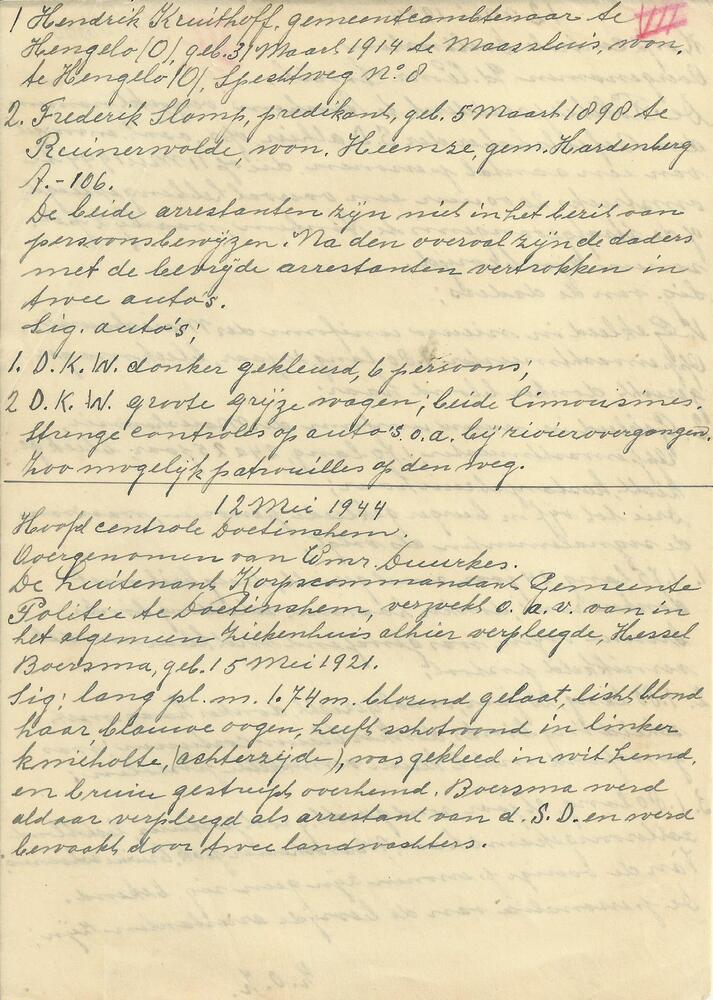 1 Hendrik Kruithoff, gemeenteambtenaar te
Hengelo (O), geb. 31 Maart 1914 te Maassluis, won.
te Hengelo (O), Spechtweg No. 8
2. Frederik Slomp, predikant, geb. 5 Maart 1898 te
Ruinerwolde, won. Heemze, gem. Hardenberg
A.-106.
De beide arrestanten zijn niet in het bezit van
persoonsbewijzen. Na den overval zijn de daders
met de bevrijde arrestanten vertrokken in
twee auto's.
Sig. auto's;
1. D.K.W. donker gekleurd, 6 persoons;
2 D.K.W. groote grijze wagen; beide limousines.
Strenge controles op auto's. o.a. bij rivierovergangen.
Zoo mogelijk patrouilles op den weg.
12 Mei 1944
Hoofd centrale Doetinchem.
Overgenomen van Wmr. Duurkes.
De Luitenant Korpscommandant Gemeente
Politie te Doetinchem, verzoekt o.a.v. van in
het algemeen ziekenhuis alhier verpleegde, Hessel
Boersma, geb. 15 Mei 1921.
Sig; lang pl.m. 1.74 m. blozend gelaat, licht blond
haar, blauwe oogen, heeft schotwond in linker
knieholte, (achterzijde), was gekleed in wit hemd,
en bruin gestreept overhemd. Boersma werd
aldaar verpleegd als arrestant van d. S.D. en werd
bewaakt door twee landwachters.